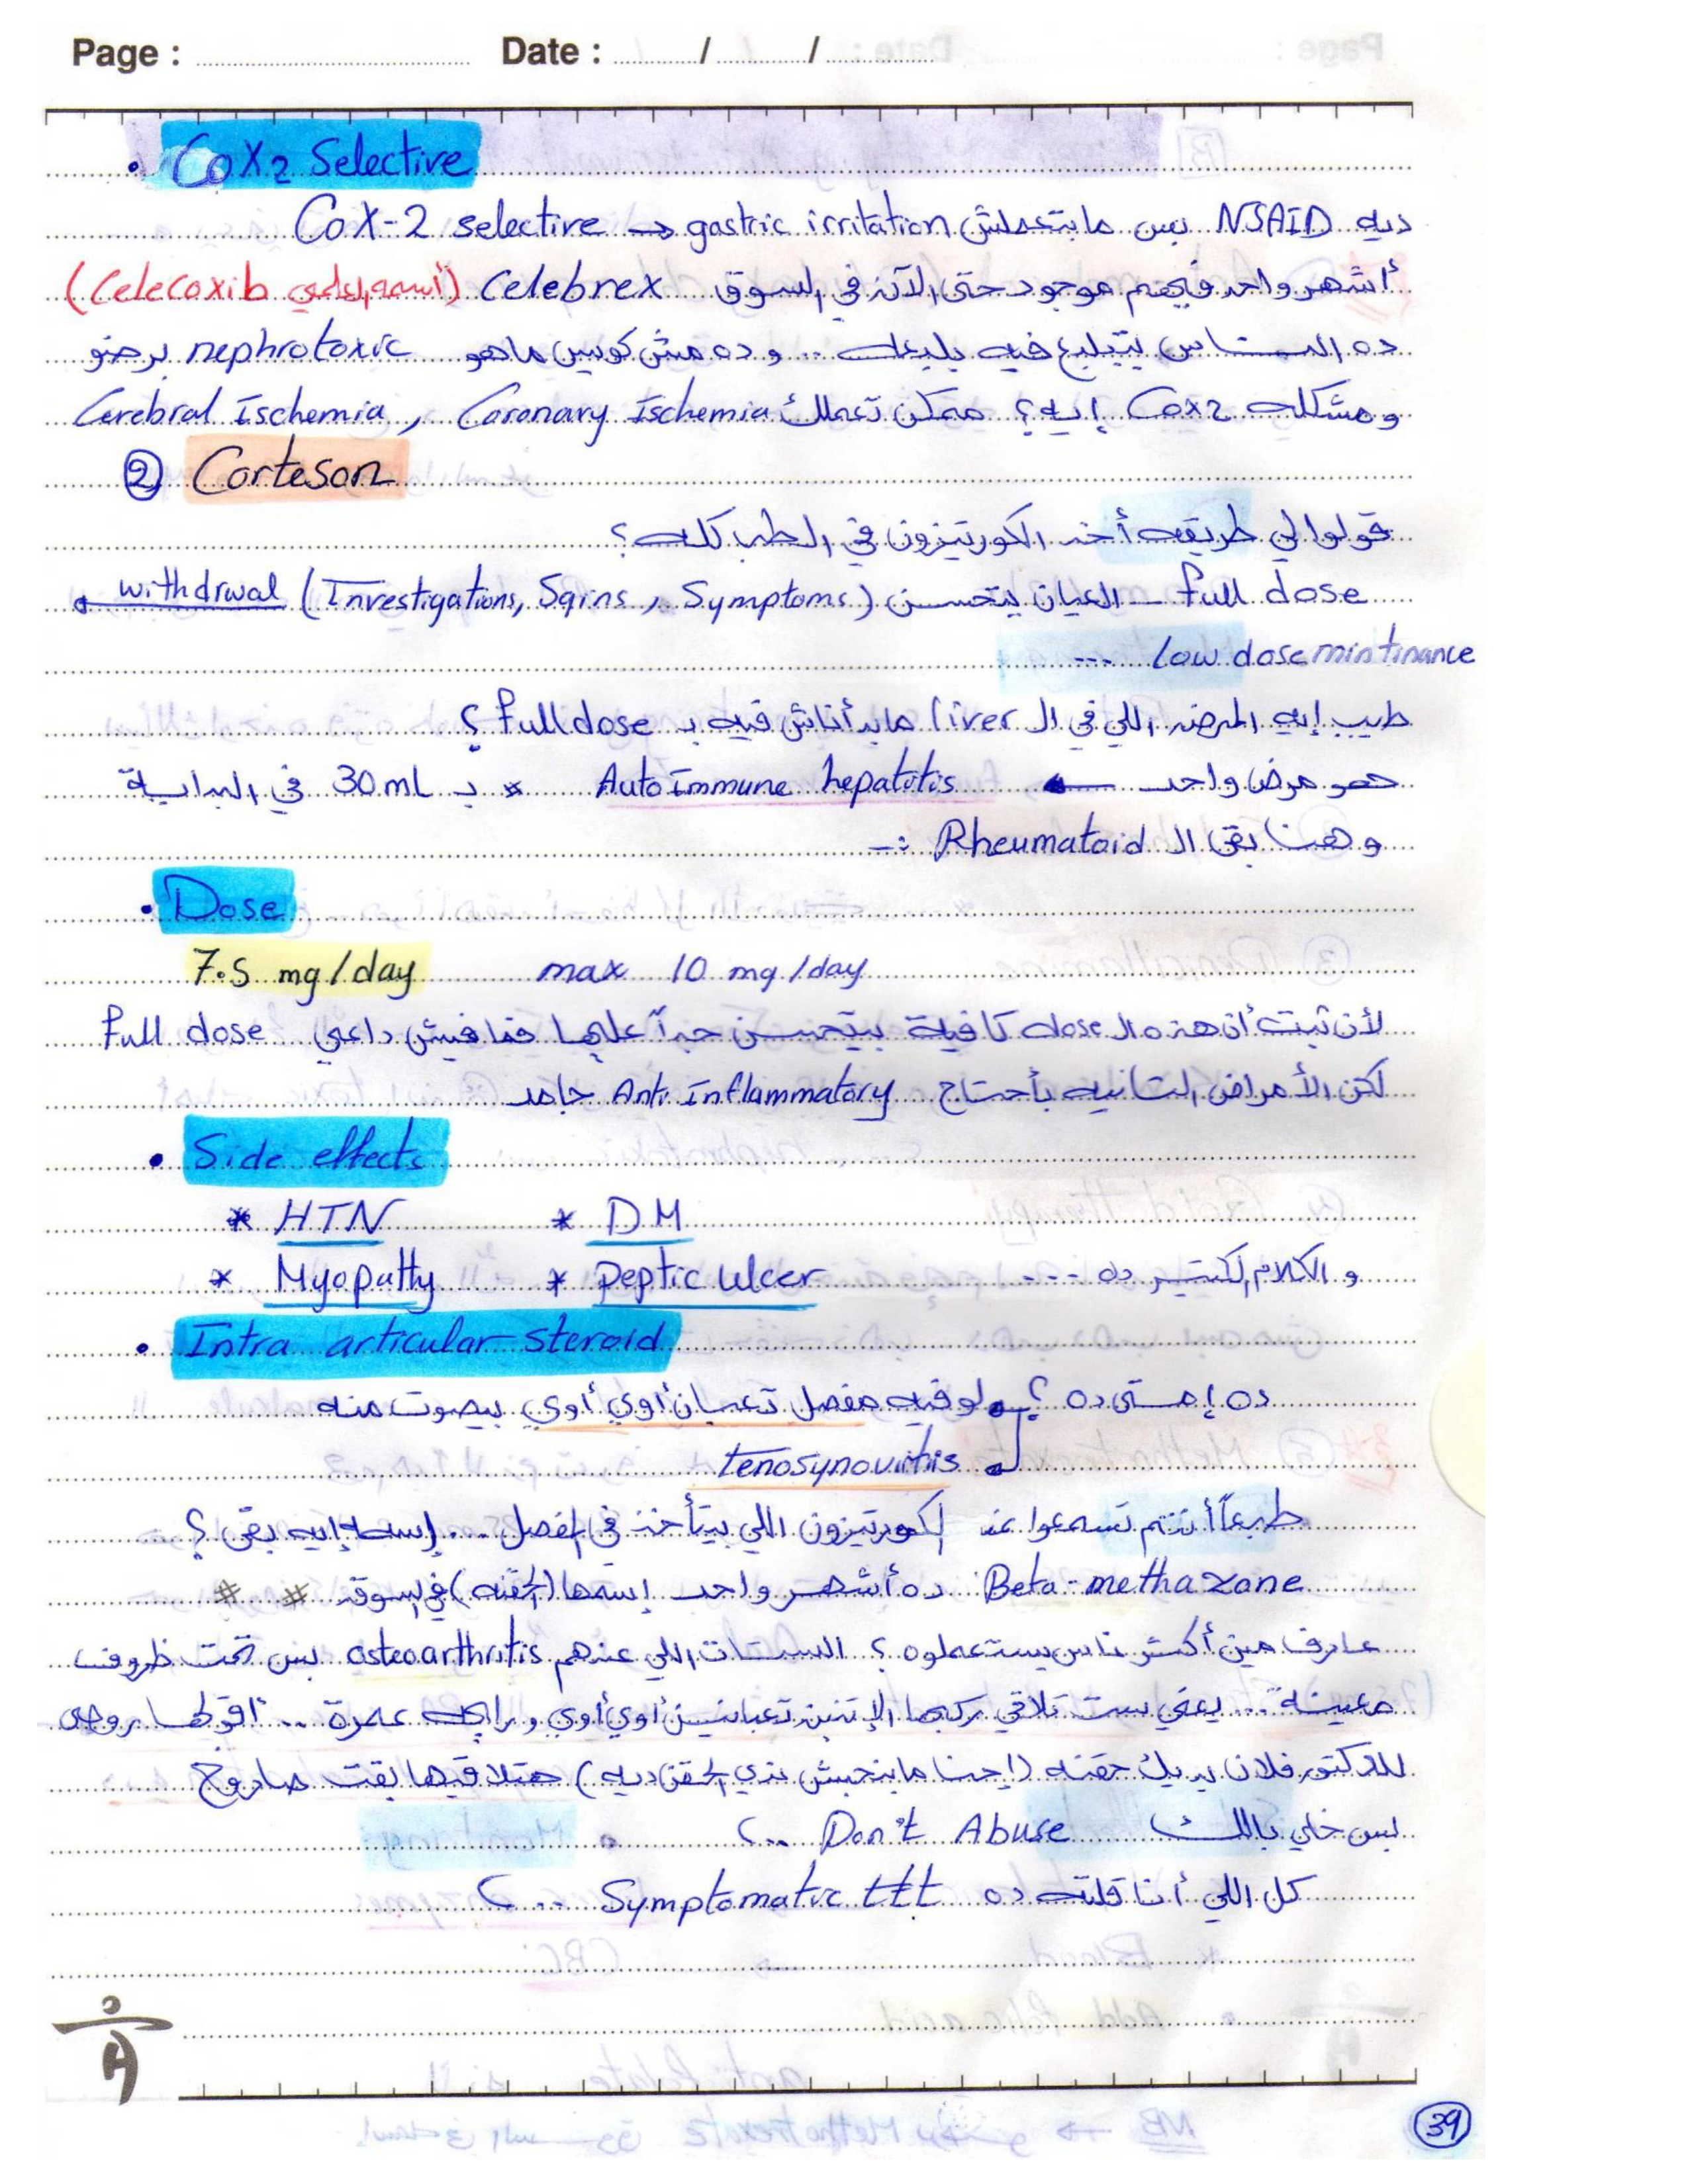 Page : Date : / /
• Cox2 Selective
ديه NSAID بس ما بتعملش gastric irritation → Cox-2 selective
أشهر واحد فيهم موجود حتى الآن في السوق Celebrex (اسمه العلمي Celecoxib)
ده الناس بتبلبع فيه بلبعه .. وده مش كويس ما هو nephrotoxic برضو
ومشكلة Cox2 إيه؟ ممكن تعملك Cerebral Ischemia , Coronary Ischemia
② Corteson
قولوا لي طريقه أخد الكورتيزون في الطب كله؟
full dose – العيان يتحسن (Investigations, Sqins , Symptoms) withdrwal
low dose mintinance ...
طيب إيه المرض اللي في ال liver ما بدأناش فيه بـ full dose ؟
هو مرض واحد ← Auto immune hepatitis * بـ 30 mL في البداية
وهنا بقى ال Rheumatoid :-
• Dose
7.5 mg/day max 10 mg/day
لأن ثبت أن هذه ال dose كافية بيتحسن جداً عليها فمافيش داعي full dose
لكن الأمراض التانيه بأحتاج Anti Inflammatory جامد
• Side effects
* HTN * DM
* Myopatty * Peptic Ulcer والكلام الكتير ده ....
• Intra articular steroid
ده إمتى ده ؟ لو فيه مفصل تعبان أوي أوي بيصوت منه
tenosynovitis
طبعاً أنتم تسمعوا عن الكورتيزون اللي بيتأخذ في المفصل ... إسمه إيه بقى ؟
Beta-methazone ده أشهر واحد إسمها (الحقنه) في السوق # #
عارف مين أكتر ناس يستعملوه ؟ الستات اللي عندهم osteoarthritis بس تحت ظروف
معينة ... يعني ست تلاقي ركبها الإتنين تعبانين أوي أوي ورايحه عمرة ... أقولها روحي
للدكتور فلان يديك حقنه (إحنا ما بنحبش ندي الحقن ديه) هتلاقيها بقت صاروخ
بس خلي بالك Don't Abuse ...
كل اللي أنا قلته ده Symptomatic ttt ...
39